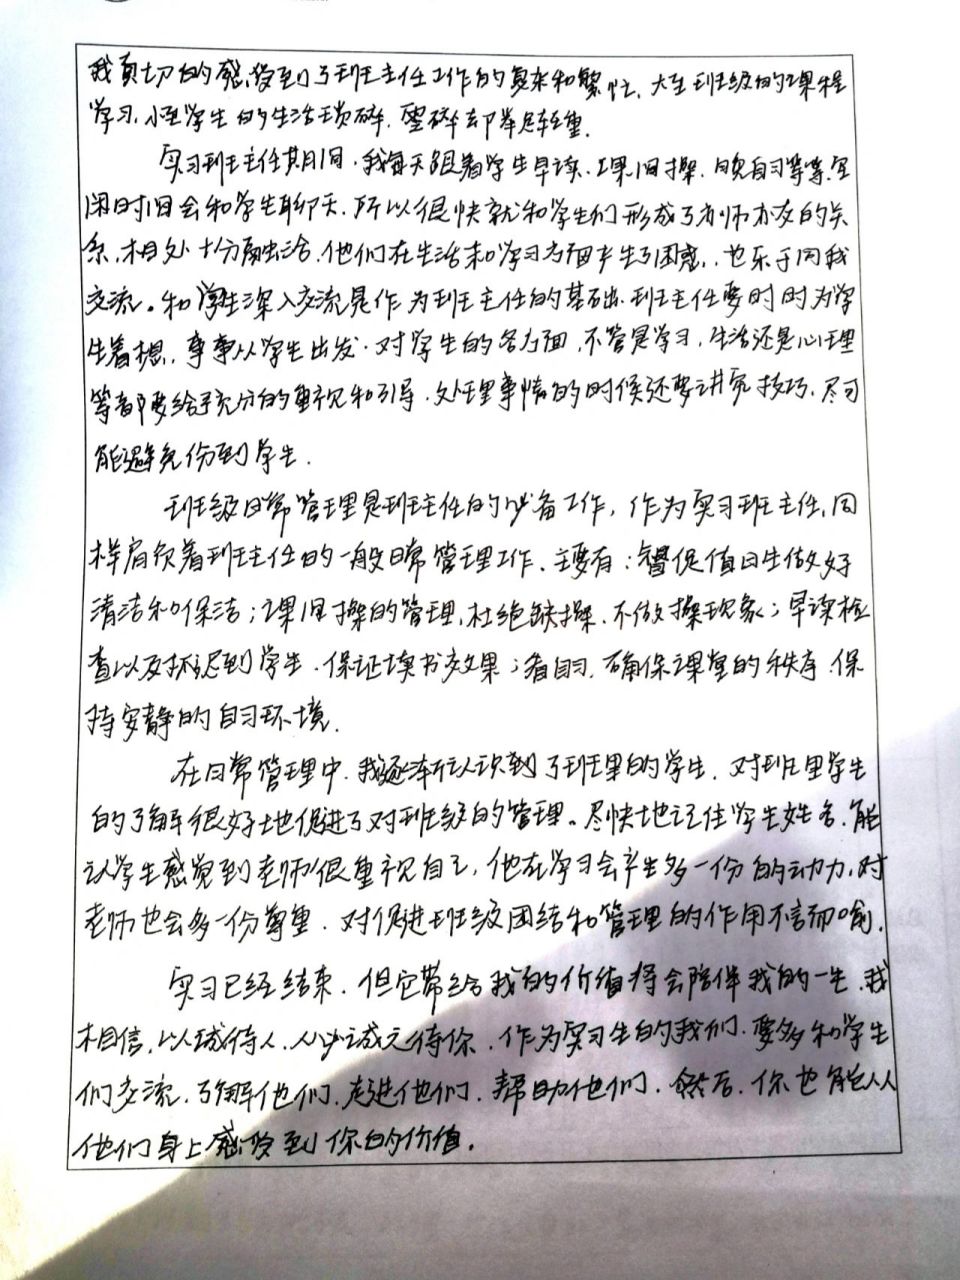 我真切的感受到了班主任工作的复杂和繁忙,大至班级的课程
学习,小至学生的生活琐碎,零碎却举足轻重.
实习班主任期间,我每天跟着学生早读、课间操、晚自习等等.空
闲时间会和学生聊天,所以很快就和学生们形成了亦师亦友的关
系,相处十分融洽,他们在生活和学习方面产生了困惑,也乐于同我
交流。和学生深入交流是作为班主任的基础.班主任要时时为学
生着想,事事从学生出发.对学生的各方面,不管是学习,生活还是心理
等都要给予充分的重视和引导.处理事情的时候还要讲究技巧,尽可
能避免份到学生.
班级日常管理是班主任的必备工作,作为实习班主任,同
样肩负着班主任的一般日常管理工作、主要有:督促值日生做好
清洁和保洁;课间操的管理,杜绝缺操、不做操现象;早读检
查以及抓迟到学生,保证读书效果;看自习,确保课堂的秩序,保
持安静的自习环境.
在日常管理中,我逐渐认识到了班里的学生,对班里学生
的了解很好地促进了对班级的管理。尽快地记住学生姓名,能
让学生感觉到老师很重视自己,他在学习会产生多一份的动力,对
老师也会多一份尊重,对促进班级团结和管理的作用不言而喻.
实习已经结束,但它带给我的价值将会陪伴我的一生.我
相信,以诚待人,人必诚之待你.作为实习生的我们,要多和学生
们交流,了解他们,走进他们,帮助他们.然后,你也能从
他们身上感受到你的价值.